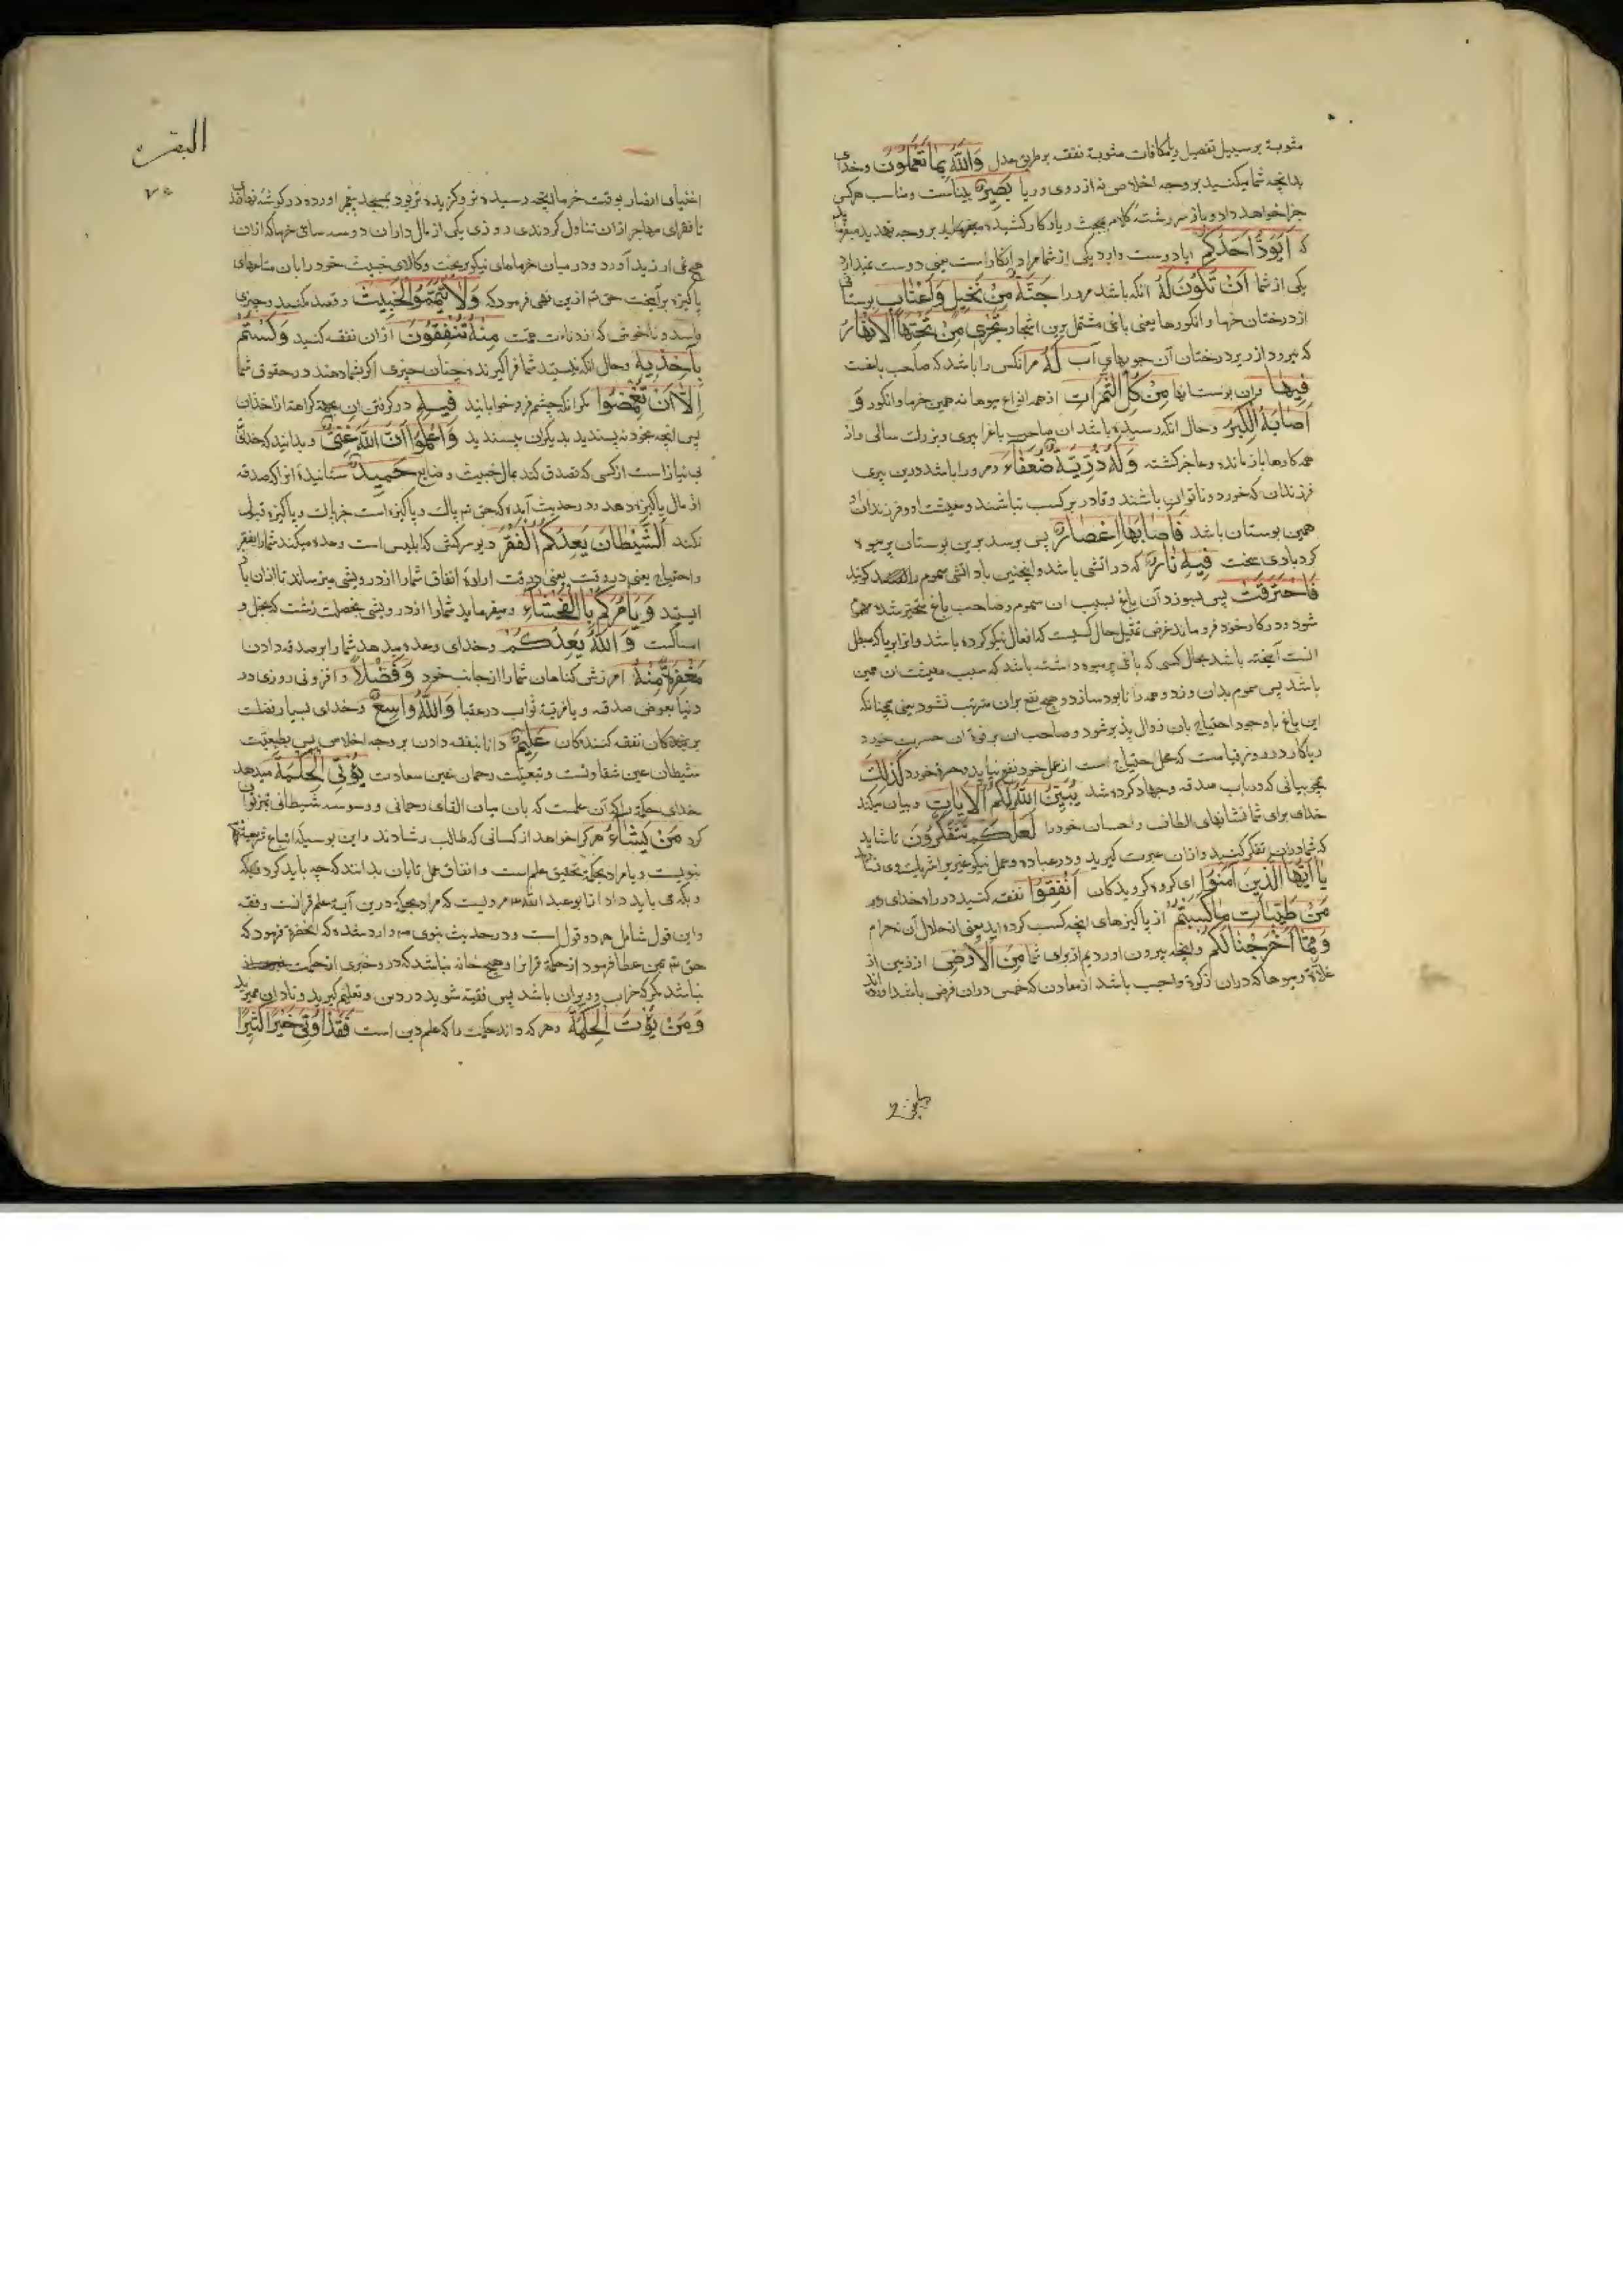 مثوبة بر سبیل تفصیل یا مکافات مثوبة نفقه بر طریق عدل وَاللّٰهُ بِمَا تَعْمَلُونَ وخدای
بدانچه شما میکنید بر وجه اخلاص نه از روی وریا بَصِیرٌ بیناست ومناسب هرکس
جزا خواهد داد وباز سر رشته کلام بمبحث ریا در کار کشیده میفرماید بر وجه تهدید میفرماید
که اَیَوَدُّ اَحَدُکُمْ ایا دوست دارد یکی از شما مراد انکار است یعنی دوست ندارد
یکی از شما اَنْ تَکُونَ لَهُ انکه باشد مرورا جَنَّةٌ مِنْ نَخِیلٍ وَاَعْنَابٍ بوستانی
از درختان خرما وانکورها یعنی باغی مشتمل برین اشجار تَجْرِی مِنْ تَحْتِهَا الْاَنْهَارُ
که میرود از زیر درختان آن جویهای آب لَهُ مرانکس را باشد که صاحب باغست
فِیهَا دران بوستانها مِنْ کُلِّ الثَّمَرَاتِ از همه انواع میوها نه همین خرما وانکور وَ
اَصَابَهُ الْکِبَرُ وحال انکه رسیده باشد ان صاحب باغ را پیری وبزرك سالی واز
همه کارها باز مانده وعاجز کشته وَلَهُ ذُرِّیَّةٌ ضُعَفَاءُ ومرورا باشد درین پیری
فرزندان که خورد وناتوان باشند وقادر بر کسب نباشند ومعیشت او وفرزندان او
همین بوستان باشد فَاَصَابَهَا اِعْصَارٌ پس برسد برین بوستان پر میوه
کردبادی سخت فِیهِ نَارٌ که در آتشی باشد واینچنین باد آتشی سموم را کویند
فَاحْتَرَقَتْ پس بسوزد آن باغ بسبب ان سموم وصاحب باغ متحیر شده
شود ودر کار خود فرو ماند غرض تمثیل حال کسیست که افعال نیکو کرده باشد وانرا بریا که مبطل
انست آمیخته باشد بحال کسی که باغی پر میوه داشته باشد که سبب معیشت ان همین
باشد پس سموم بدان وزد وهمه را نابود سازد وهیچ نفع بران مترتب نشود یعنی همچنانکه
این باغ با وجود احتیاج بان زوال پذیر شود وصاحب ان بر فوت ان حسرت خورد
ریاکار در روز قیامت که محل احتیاج است از عمل خود نفع نیابد وحسرت خورد کَذٰلِکَ
همچو بیانی که در باب صدقه وجهاد کرده شد یُبَیِّنُ اللّٰهُ لَکُمُ الْاٰیَاتِ وبیان میکند
خدای برای شما نشانهای الطاف واحسان خود را لَعَلَّکُمْ تَتَفَکَّرُونَ تا شاید
که شما دران تفکر کنید وازان عبرت کیرید ودر عباده وعمل نیکو غیر برا شریك وی نسازید
یَا اَیُّهَا الَّذِینَ اٰمَنُوا ای کروه کرویدکان اَنْفِقُوا نفقه کنید در راه خدای در
مِنْ طَیِّبَاتِ مَا کَسَبْتُمْ از پاکیزهای انچه کسب کرده اید یعنی از حلال آن نه حرام
وَمِمَّا اَخْرَجْنَا لَکُمْ وانچه بیرون اوردیم از برای شما مِنَ الْاَرْضِ از زمین از
غلّه ومیوها که دران زکوة واجب باشد از معادن که خمس دران فرض باشد
البقره
۷۵
اغنیای انصار بوقت خرما انچه رسیده تر وکزیده تر بود بمسجد پیغمبر اورده در کوشه نهادندی
تا فقرای مهاجر ازان تناول کردندی روزی یکی از مال داران دو سه ساع خرما که ازان
هیچ نمی ارزید آورد ودر میان خرماهای نیکو ریخت وکالای خبیث خود را بان متاعهای
پاکیزه برآمیخت حق تم ازین نهی فرمود که وَلَا تَیَمَّمُوا الْخَبِیثَ وقصد مکنید وچیزی
فاسد وناخوش که از دناءت همت مِنْهُ تُنْفِقُونَ ازان نفقه کنید وَلَسْتُمْ
بِاٰخِذِیهِ وحال انکه نیستید شما فراکیرنده چنان چیزی اکر بشما دهند در حقوق شما
اِلَّا اَنْ تُغْمِضُوا مکر انکه چشم فرو خوابانید فِیهِ در کرفتن ان بجهة کراهة از اخذ ان
پس انچه بخود نه پسندید بدیکران مپسندید وَاعْلَمُوا اَنَّ اللّٰهَ غَنِیٌّ وبدانید که خدای
بی نیاز است از کسی که تصدق کند بمال خبیث وضایع حَمِیدٌ ستاینده انرا که صدقه
از مال پاکیزه دهد ودر حدیث آمده که حق تم پاك وپاکیزه است جز پاك وپاکیزه قبول
نکند اَلشَّیْطَانُ یَعِدُکُمُ الْفَقْرَ دیو سرکش که ابلیس است وعده میکند شما را بفقر
واحتیاج یعنی در وقت یعنی در وقت ارادة انفاق شما را از درویشی میترساند تا ازان باز
ایستید وَیَاْمُرُکُمْ بِالْفَحْشَاءِ ومیفرماید شما را از درویشی بخصلت زشت که بخل و
امساکست وَاللّٰهُ یَعِدُکُمْ وخدای وعده میدهد شما را بر صدقه دادن
مَغْفِرَةً مِنْهُ آمرزش کناهان شما را از جانب خود وَفَضْلًا وافزونی روزی در
دنیا بعوض صدقه ویا فزونی ثواب در عقبا وَاللّٰهُ وَاسِعٌ وخدای بسیار فضلست
بر بندکان نفقه کنندکان عَلِیمٌ دانا بنفقه دادن بر وجه اخلاص پس بطبعیت
شیطان عین شقاوتست وتبعیت رحمان عین سعادت یُؤْتِی الْحِکْمَةَ میدهد
خدای حکمة را که آن علمست که بان میان القای رحمانی ووسوسه شیطانی تمیز توان
کرد مَنْ یَشَاءُ هر کرا خواهد از کسانی که طالب رشادند واین بوسیله اتباع شریعة
نبویست ویا مراد بحکمة تحقیق علم است واتفاق عمل تا بان بدانند که چه باید کرد
وبکه می باید داد اما ابو عبد الله ع م مرویست که مراد بحکمة درین آیة علم قرانست وفقه
واین قول شامل هر دو قول است ودر حدیث نبوی ص م وارد شده که انحضرة فرمود که
حق تم بمن عطا فرمود از حکمة قران را وهیچ خانه نباشد که درو چیزی از حکمت
نباشد مکر که خراب وویران باشد پس فقیه شوید در دین وتعلیم کیرید ونادان ممیرید
وَمَنْ یُؤْتَ الْحِکْمَةَ وهر که داند حکمت را که علم دین است فَقَدْ اُوتِیَ خَیْرًا کَثِیرًا